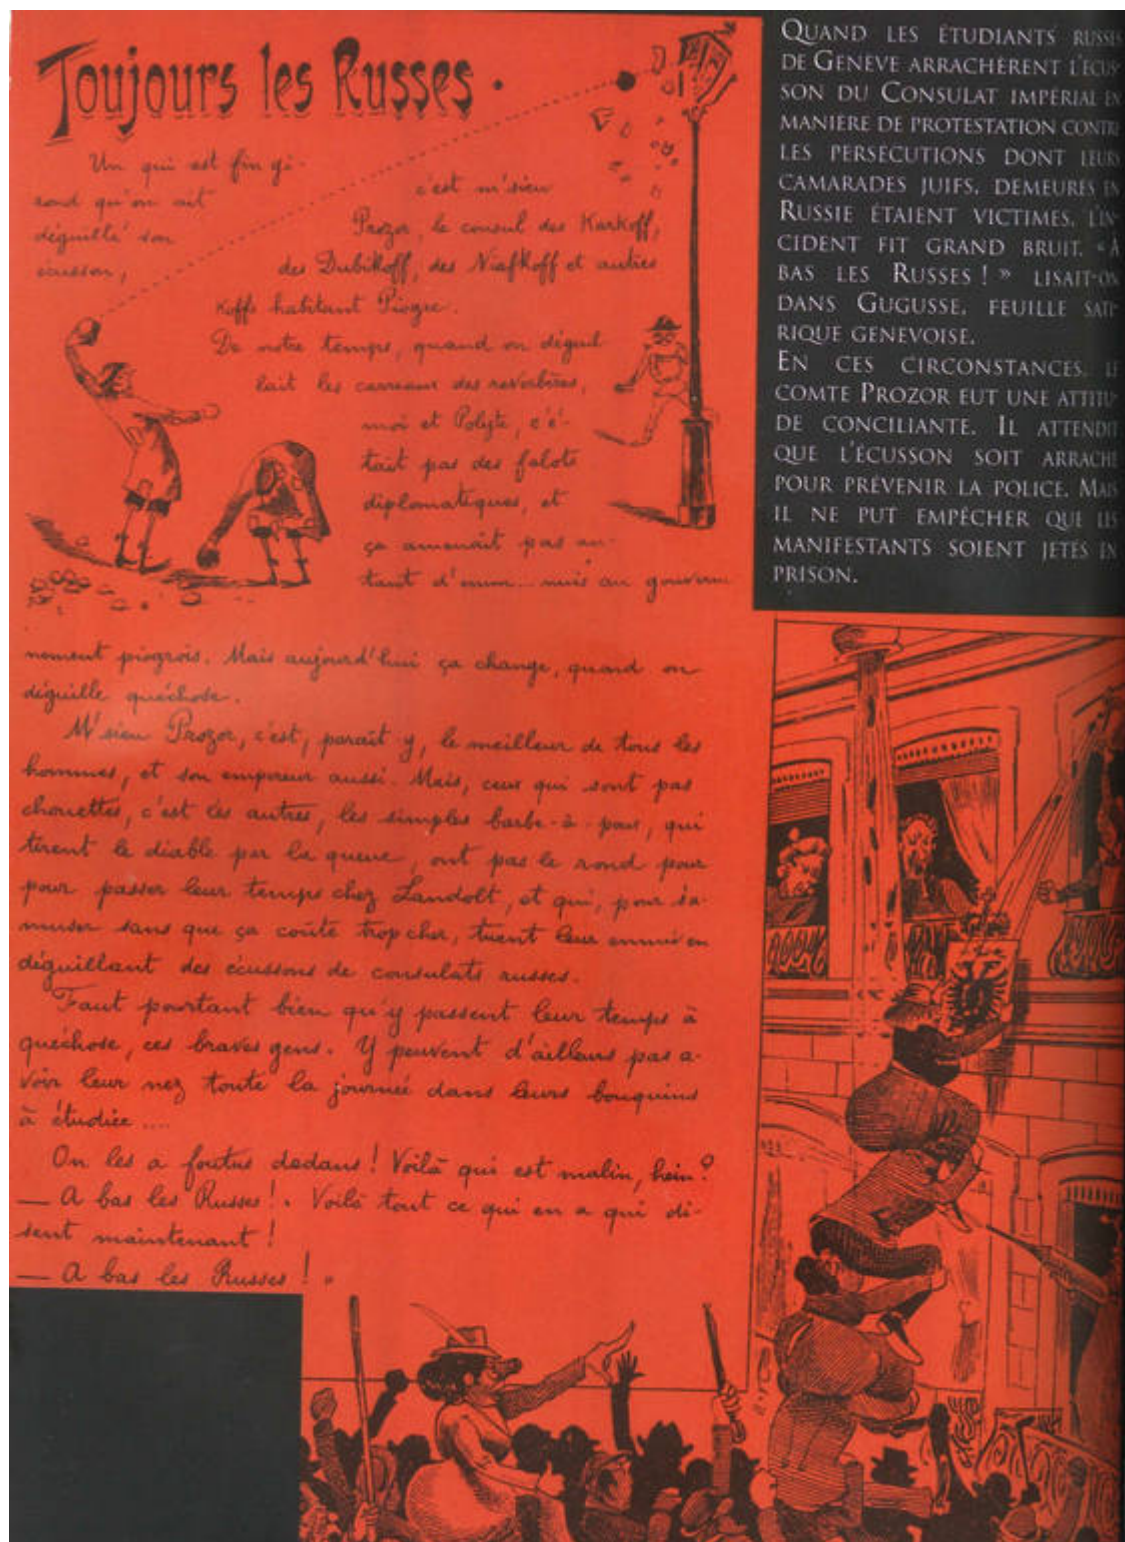 Toujours les Russes.
Un qui est fin gi-
rond qu'on ait
déguillé son
écusson,
c'est m'sieu
Prozor, le consul des Karkoff,
des Dubikoff, des Niafkoff et autres
Koffs habitant Piogre.
De notre temps, quand on déguil
lait les carreaux des reverbères,
moi et Polyte, c'é-
tait pas des falots
diplomatiques, et
ça amenait pas au-
tant d'ennui... mais au gouverne
nement piogrois. Mais aujourd'hui ça change, quand on
déguille quéchose.
M'sieu Prozor, c'est, paraît y, le meilleur de tous les
hommes, et son empereur aussi. Mais, ceux qui sont pas
chouettes, c'est les autres, les simples barbe-à-poux, qui
tirent le diable par la queue, ont pas le rond pour
pour passer leur temps chez Landolt, et qui, pour s'a-
muser sans que ça coûte trop cher, tuent leur ennui en
déguillant des écussons de consulats russes.
Faut pourtant bien qu'y passent leur temps à
quéchose, ces braves gens. Y peuvent d'ailleurs pas a-
voir leur nez toute la journée dans leurs bouquins
à étudier....
On les a foutus dedans! Voilà qui est malin, hein?
— A bas les Russes!. Voilà tout ce qui en a qui di-
sent maintenant!
— A bas les Russes! »
QUAND LES ÉTUDIANTS RUSSES
DE GENÈVE ARRACHÈRENT L'ÉCUS-
SON DU CONSULAT IMPÉRIAL EN
MANIÈRE DE PROTESTATION CONTRE
LES PERSÉCUTIONS DONT LEURS
CAMARADES JUIFS, DEMEURÉS EN
RUSSIE ÉTAIENT VICTIMES, L'IN-
CIDENT FIT GRAND BRUIT. « À
BAS LES RUSSES ! » LISAIT-ON
DANS GUGUSSE, FEUILLE SATI-
RIQUE GENEVOISE.
EN CES CIRCONSTANCES, LE
COMTE PROZOR EUT UNE ATTITU-
DE CONCILIANTE. IL ATTENDIT
QUE L'ÉCUSSON SOIT ARRACHÉ
POUR PRÉVENIR LA POLICE. MAIS
IL NE PUT EMPÊCHER QUE LES
MANIFESTANTS SOIENT JETÉS EN
PRISON.